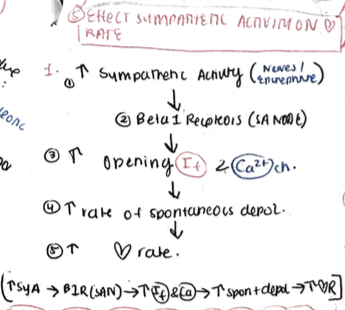 ⑤ EFFECT SYMPATHETIC ACTIVITY ON ♡
RATE
1. ① ↑ Sympathetic Activity (Nerves/
Epinephrine)
↓
② Beta 1 Receptors (SA NODE)
↓
③ ↑ Opening If & Ca²⁺ ch.
↓
④ ↑ rate of spontaneous depol.
↓
⑤ ↑ ♡ rate.
[↑SyA → B1R(SAN) → ↑ If & Ca → ↑ spont depol → ↑♡R]